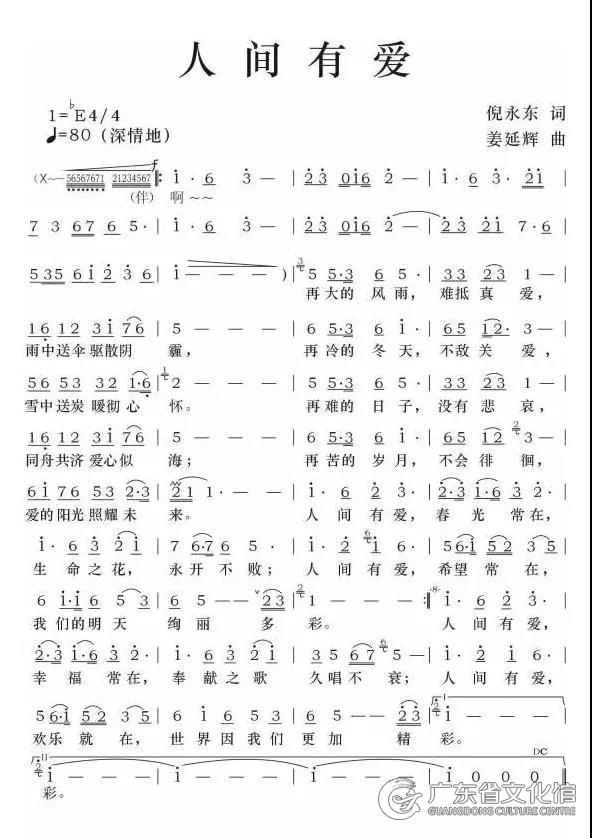 人间有爱
1=♭E4/4
倪永东 词
♩=80（深情地）
姜延辉 曲
(X~~ 56567671 21234567 f ‖: i· 6 3 - | 23 016 2· - | i·6 3· 2i |
(伴) 啊~~
7 3 67 6 5· | i· 6 3 - | 23 0i6 2· - | 2·3 2i 7·6 |
535 6i2 3 6 | i - - - ) | 5 5·3 6 5· | 33 23 1 - |
再大的 风雨，难抵真 爱，
16 12 3i 76 | 5 - - - | 6 5·3 6 i· | 65 12· 3 - |
雨中送伞驱散阴 霾， 再冷的 冬天，不敌关 爱，
56 53 12 i·6 | 2 - - - | 5 5·3 6 5· | 33 23 1 - |
雪中送炭 暖彻心 怀。 再难的 日子，没有悲 哀，
16 12 3i 76 | 5 - - - | 6 5·3 6 i· | 65 12 3 - |
同舟共济 爱心似 海； 再苦的 岁月，不会徘 徊，
6i 765 53 2·3 | 21 1 - - | i· 6 2 3· | 2·3 i·6 5 - |
爱的阳光照耀未 来。 人间有爱，春光常在，
i· 6 3 2i | 7 6·7 6 5 - | i· 2 6 i· | 56·i 52 3 5 |
生命之花，永开不败；人间有爱，希望常在，
6 i·i 65 5 3 | 6 5 - - 23 | 1 - - - :‖ i· 6 2 3· |
我们的明天 绚丽 多 彩。 人间有爱，
2·3 i·6 3 - | i· 6 3 2i | 35 67 5 - | i· 2 i 6· |
幸福常在，奉献之歌 久唱不衰；人间有爱，
5 6·i 52 3 5 | 6 5 6 6 5 5 | 5 - - 23 | i - - - :‖
欢乐就在，世界因我们更加 精 彩。
II i - - - | i - - - | i - - - | i 0 0 0 ‖ DC
彩。
广东省文化馆
GUANGDONG CULTURE CENTRE